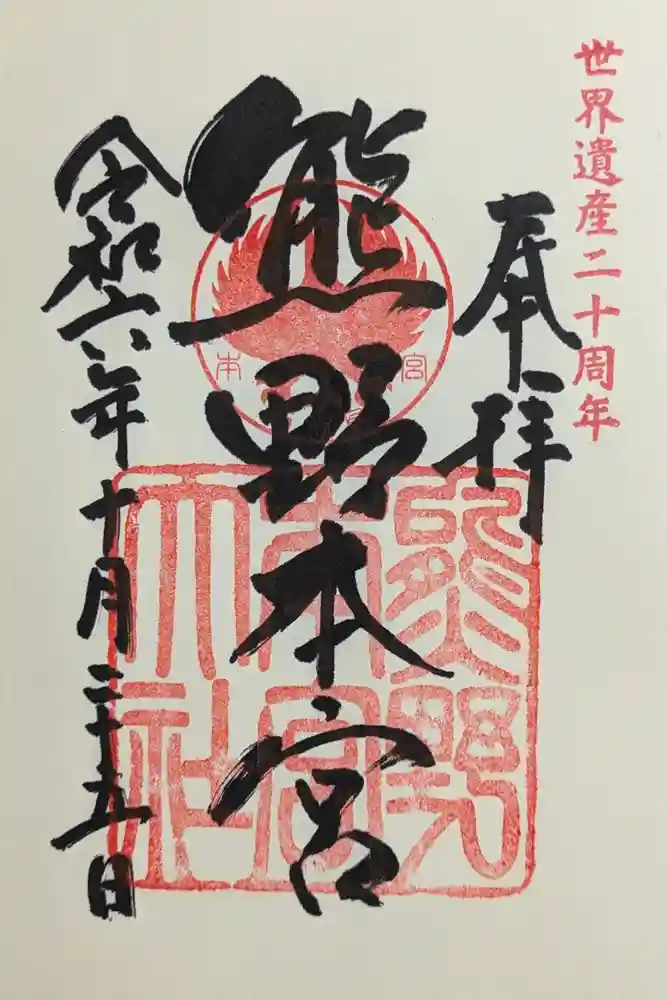 世界遺産二十周年
奉拝
熊野本宮
令和六年十月二十五日
本
宮
熊野
本宮
大社